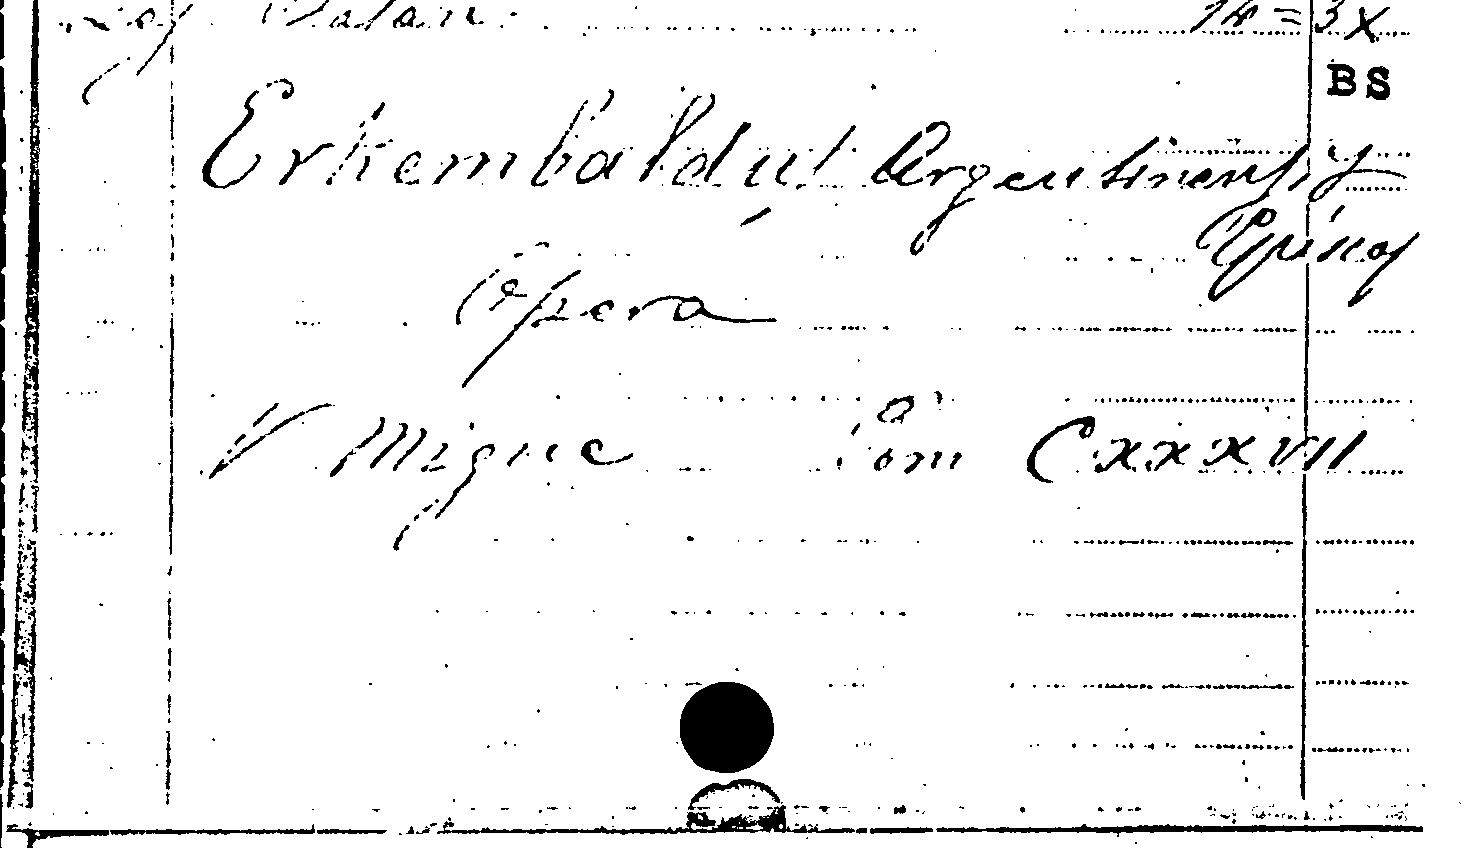 14 = 3x
BS
Erkembaldus Argentinensis
Episcop
Opera
V Migne Tom CXXXVII